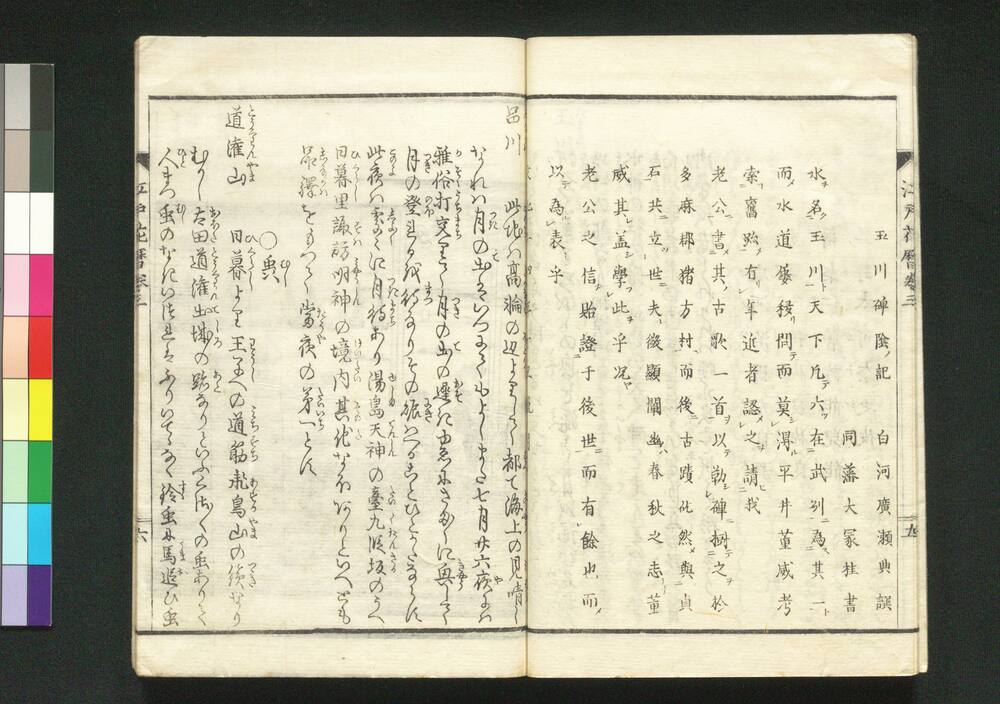 玉川碑陰ノ記　白河廣瀬典譔
同藩大冢桂書
水名玉川天下凡六在武列為其一
而水道屡移問而莫得平井董威考
索舊跡有年近者認之請我
老公書其古歌一首以勒碑樹之於
多麻郡猪方村而後古蹟此然與貞
石共立世夫微顯闡幽春秋之志董
威其盖學此乎況
老公之信貽證于後世而有餘也而
以為表乎
品川　此地ハ高輪の辺より 都て海上の見晴し
なれハ月の出る いつにてもよしまた七月廿六夜にハ
雅俗打交りて月の出の遅に 興して
月の登るを待なりその賑へることひとかたならす
此夜ハ 月待あり湯島天神の臺九段坂のうへ
日暮里諏訪明神の境内其他なほありといへども
をもつて當夜の第一とす
○虫
道灌山　日暮より王子への道筋飛鳥山の續なり
むかし太田道灌出城の跡なりといふくさ〳〵の虫ありて
人まつ虫のなに ふりいでゝなく鈴虫 馬追ひ虫
江戸花暦巻三